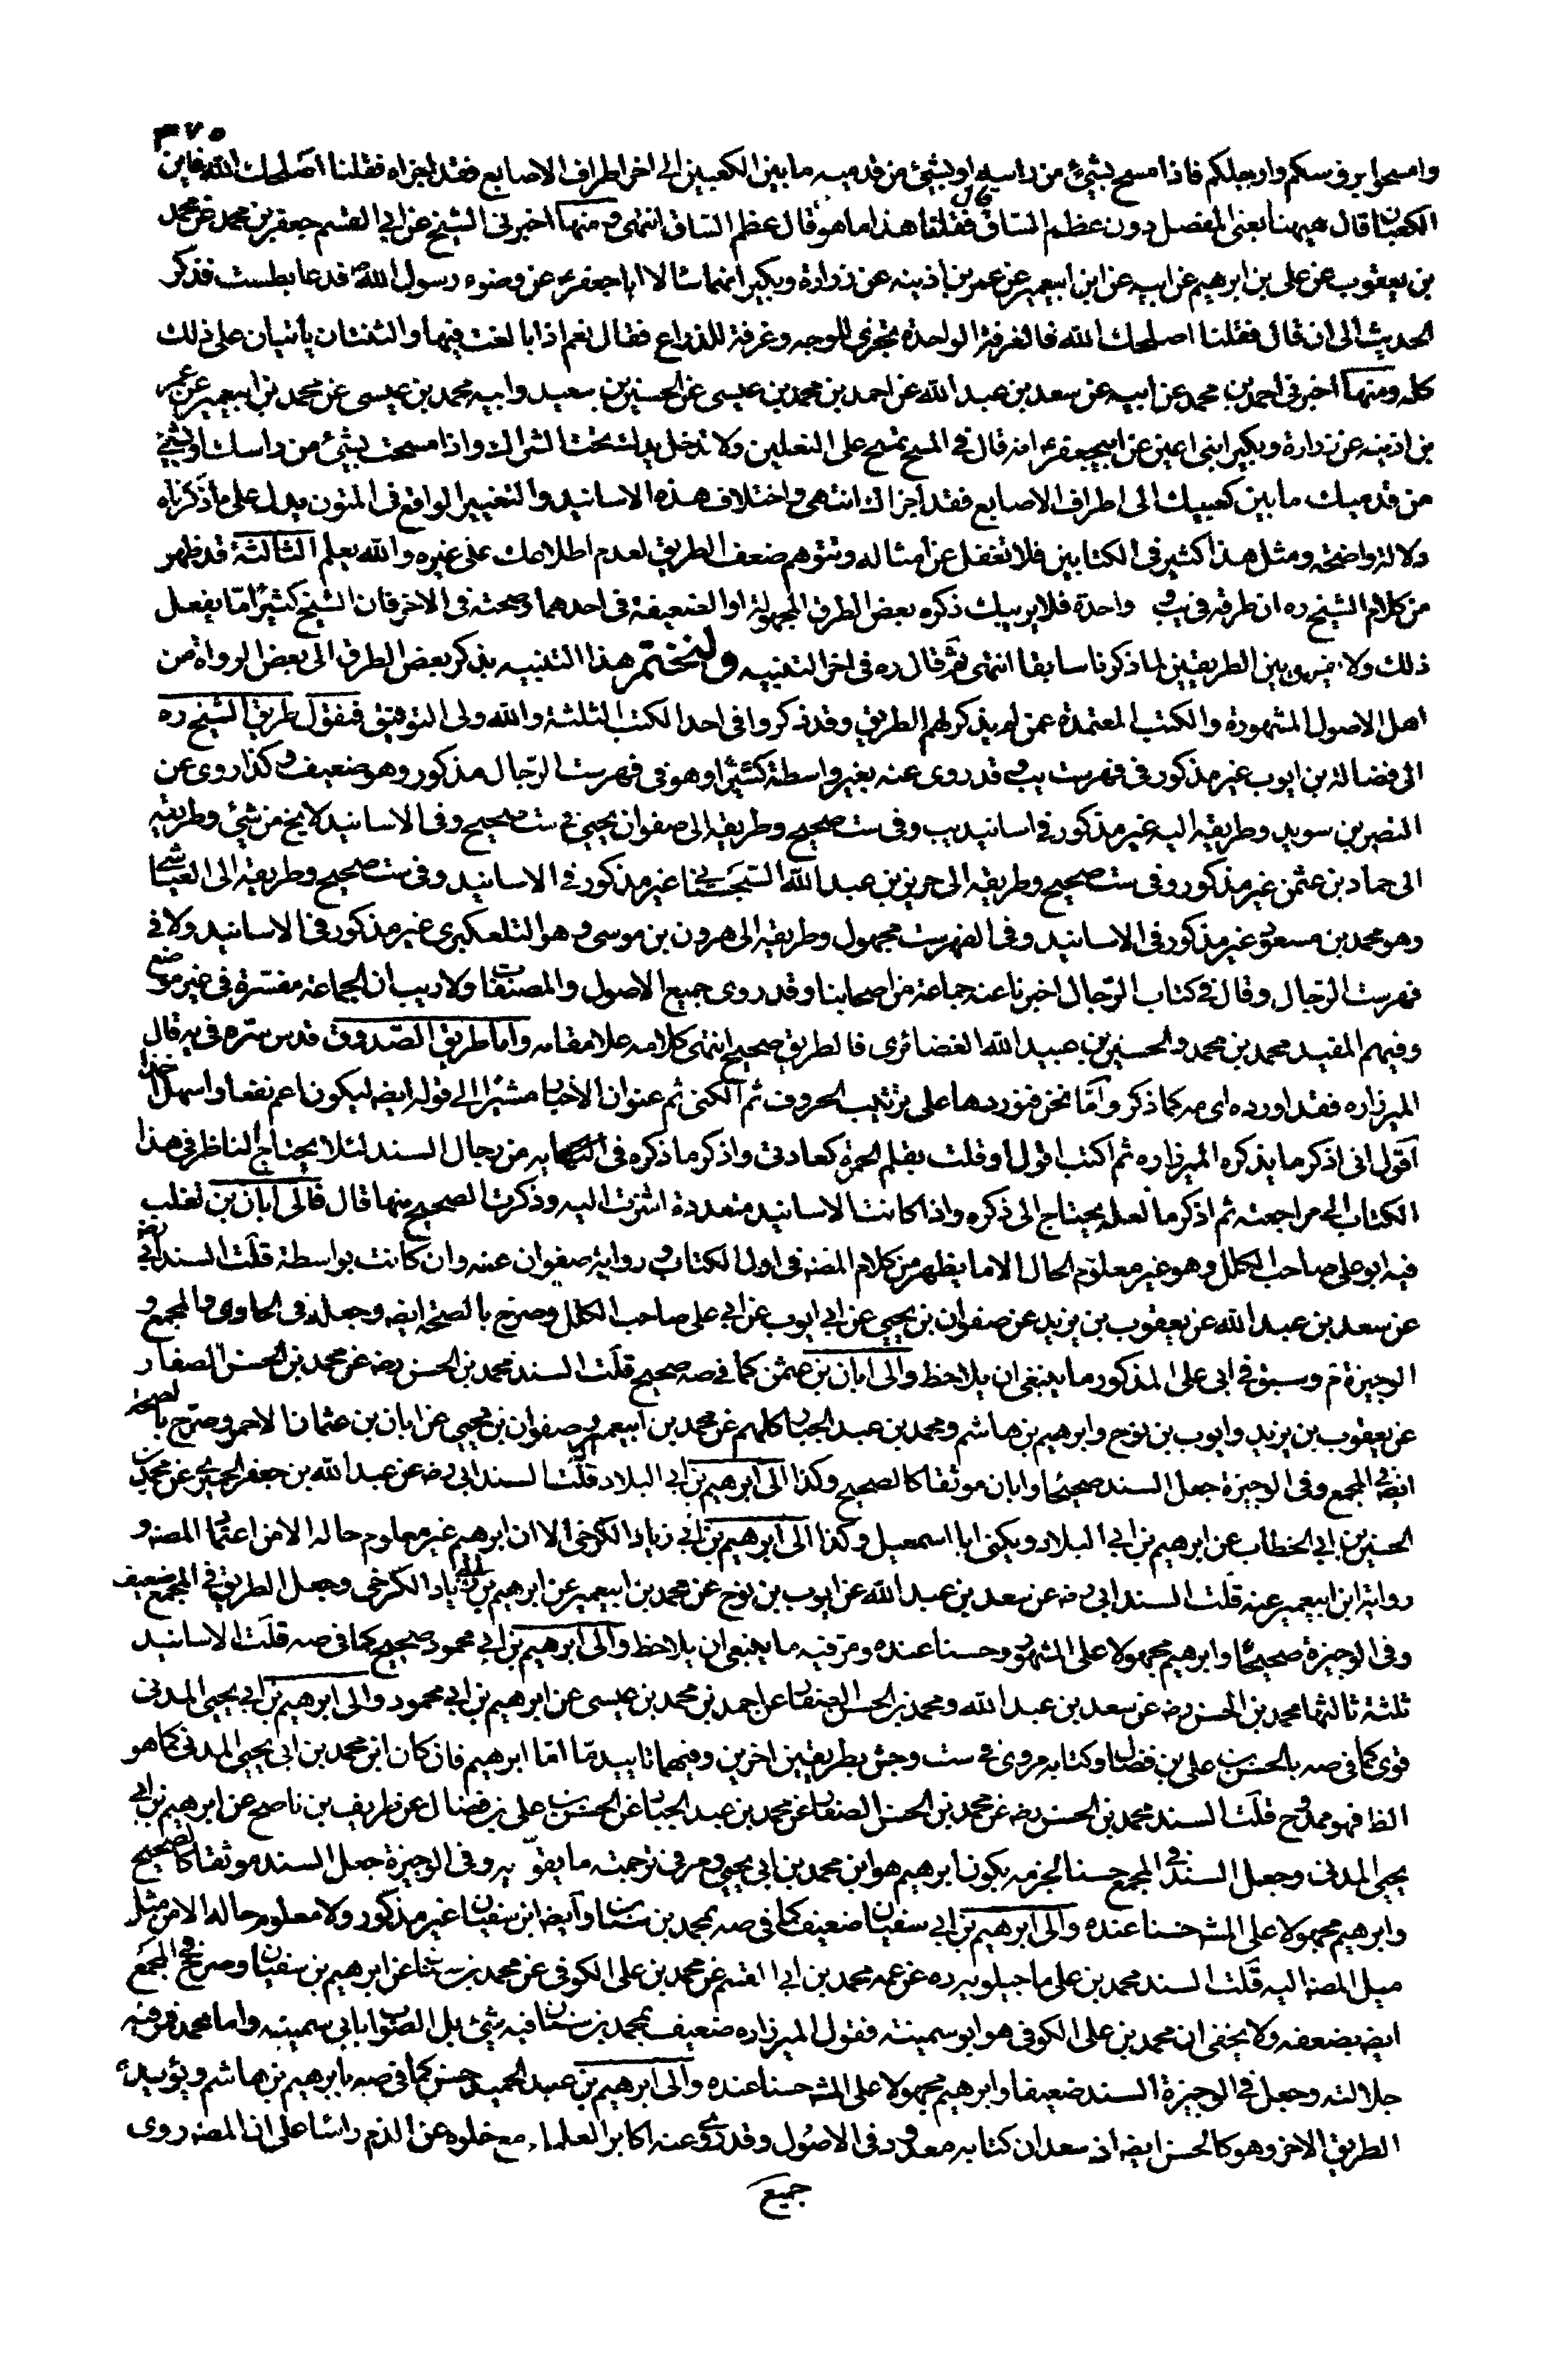 ٣٧٥
وامسحوا برؤسكم وارجلكم فاذا مسح بشئ من راسه او بشئ من قدميه ما بين الكعبين الى اخر اطراف الاصابع فقد اجزاه فقلنا اصلحك الله فاين
الكعبان قال هيهنا يعنى المفصل دون عظم الساق فقلنا هذا ما هو قال عظم الساق انتهى ومنها اخبرنى الشيخ عن ابى القسم جعفر بن محمد عن محمد
بن يعقوب عن على بن ابرهيم عن ابيه عن ابن ابيعمير عن عمر بن اذينه عن زرارة وبكير انهما سالا ابا جعفر ع عن وضوء رسول الله ص فدعا بطست فذكر
الحديث الى ان قال فقلنا اصلحك الله فالغرفة الواحدة تجزى للوجه وغرفة للذراع فقال نعم اذا بالغت فيها والثنتان ياتيان على ذلك
كله ومنها اخبرنى احمد بن محمد عن ابيه عن سعد بن عبد الله عن احمد بن محمد بن عيسى عن الحسين بن سعيد وابيه محمد بن عيسى عن محمد بن ابيعمير عن عمر
بن اذينه عن زرارة وبكير ابنى اعين عن ابيجعفر ع انه قال فى المسح تمسح على النعلين ولا تدخل يدك تحت الشراك واذا مسحت بشئ من راسك او بشئ
من قدميك ما بين كعبيك الى اطراف الاصابع فقد اجزاك انتهى واختلاف هذه الاسانيد والتغيير الواقع فى المتون يدل على ما ذكرناه
دلالة واضحة ومثل هذا كثير فى الكتابين فلا تغفل عن امثاله وتتوهم ضعف الطريق لعدم اطلاعك على غيره والله يعلم الثالثة قد ظهر
من كلام الشيخ ره ان طرقه فى يب و واحدة فلا يريبك ذكره بعض الطرق المجهولة او الضعيفة فى احدهما وصحته فى الاخر فان الشيخ كثيرا ما يفعل
ذلك ولا بين الطريقين لما ذكرنا سابقا انتهى ثم قال ره فى اخر التنبيه ولنختم هذا التنبيه بذكر بعض الطرق الى بعض الرواة من
اهل الاصول المشهورة والكتب المعتمدة عمن لم يذكر لهم الطريق وقد ذكروا فى احد الكتب الثلثة والله ولى التوفيق فنقول طريق الشيخ ره
الى فضالة بن ايوب غير مذكور فى فهرست يب و قد روى عنه بغير واسطة كثيرا وهو فى فهرست الرجال مذكور وهو ضعيف وكذا روى عن
النضر بن سويد وطريقه اليه غير مذكور فى اسانيد يب وفى ست صحيح وطريقه الى صفوان يحيى فى ست صحيح وفى الاسانيد لا يخ من شئ وطريقه
الى حماد بن عثمن غير مذكور وفى ست صحيح وطريقه الى حريز بن عبد الله السجستانى غير مذكور فى الاسانيد وفى ست صحيح وطريقه الى العياشى
وهو محمد بن مسعود غير مذكور فى الاسانيد وفى الفهرست مجهول وطريقه الى هرون بن موسى وهو التلعكبرى غير مذكور فى الاسانيد ولا فى
فهرست الرجال وقال فى كتاب الرجال اخبرنا عنه جماعة من اصحابنا وقد روى جميع الاصول والمصنفات ولا ريب ان الجماعة مفسرة فى غير موضع
وفيهم المفيد محمد بن محمد والحسين بن عبيد الله الغضائرى فالطريق صحيح انتهى كلامه علا مقامه واما طريق الصدوق قدس سره فى يه قال
الميرزا ره فقد اورده اى مه كما ذكر واما نحن فنوردها على ترتيب الحروف ثم الكنى ثم عنوان الاخبار مشيرا الى قوله ايضه ليكون اعم نفعا واسهل اخذا
اقول انى اذكر ما يذكره الميرزا ره ثم اكتب اقول او قلت بقلم الحمرة كعادتى واذكر ما ذكره فى النهايه من رجال السند لئلا يحتاج الناظر فى هذا
الكتاب الى مراجعته ثم اذكر ما لعله يحتاج الى ذكره واذا كانت الاسانيد متعددة اشرت اليه وذكرت الصحيح منها قال فالى ابان بن تغلب
فيه ابو على صاحب الكلل وهو غير معلوم الحال الا ما يظهر من كلام المصنه فى اول الكتاب و رواية صفوان عنه وان كانت بواسطة قلت السند ابى رضه
عن سعد بن عبد الله عن يعقوب بن يزيد عن صفوان بن يحيى عن ابى ايوب عن ابى على صاحب الكلل وصرح بالصحة ايضه وجعله فى الحاوى والمجمع و
الوجيزة م وسبق فى ابى على المذكور ما ينبغى ان يلاحظ والى ابان بن عثمن كما فى صه صحيح قلت السند محمد بن الحسن رضه عن محمد بن الحسن الصفار
عن يعقوب بن يزيد وايوب بن نوح وابرهيم بن هاشم ومحمد بن عبد الجبار كلهم عن محمد بن ابيعمير وصفوان بن يحيى عن ابان بن عثمان الاحمر وصرح بالصحة
ايضه فى المجمع وفى الوجيزة جعل السند صحيحا وابان موثقا كالصحيح وكذا الى ابرهيم بن ابى البلاد قلت السند ابى رضه عن عبد الله بن جعفر الحميرى عن محمد بن
الحسين بن ابى الخطاب عن ابرهيم بن ابى البلاد ويكنى ابا اسمعيل وكذا الى ابرهيم بن ابى زياد الكرخى الا ان ابرهيم غير معلوم حاله الا من اعتماد المصنه و
رواية ابن ابيعمير عنه قلت السند ابى رضه عن سعد بن عبد الله عن ايوب بن نوح عن محمد بن ابيعمير عن ابرهيم بن ابى زياد الكرخى وجعل الطريق فى المجمع ضعيف
وفى الوجيزة صحيحا وابرهيم مجهولا على المشهور وحسنا عنده ومر فيه ما ينبغى ان يلاحظ والى ابرهيم بن ابى محمود صحيح كما فى صه قلت الاسانيد
ثلثة ثالثها محمد بن الحسن رضه عن سعد بن عبد الله ومحمد بن الحسن الصفار عن احمد بن محمد بن عيسى عن ابرهيم بن ابى محمود والى ابرهيم بن ابى يحيى المدنى
قوى كما فى صه بالحسن بن على بن فضال وكتابه مروى فى ست وجش بطريقين اخرين وفيهما تاييد ما اما ابرهيم فان كان ابن محمد بن ابى يحيى المدنى كما هو
الظ فهو ممدوح قلت السند محمد بن الحسن رضه عن محمد بن الحسن الصفار عن محمد بن عبد الجبار عن الحسن بن على بن فضال عن ظريف بن ناصح عن ابرهيم بن ابى
يحيى المدنى وجعل السند فى المجمع حسنا لجزمه بكون ابرهيم هو ابن محمد بن ابى يحيى ومر فى ترجمته ما يقويه وفى الوجيزة جعل السند موثقا كالصحيح
وابرهيم مجهولا على المشه حسنا عنده والى ابرهيم بن ابى سفيان ضعيف كما فى صه بمحمد بن سنان وايضه ابن سفيان غير مذكور ولا معلوم حاله الا من مثل
ميل المصنه اليه قلت السند محمد بن على ماجيلويه ره عن عمه محمد بن ابى القسم عن محمد بن على الكوفى عن محمد بن سنان عن ابرهيم بن سفيان وصرح فى المجمع
ايضه بضعفه ولا يخفى ان محمد بن على الكوفى هو ابو سمينة فقول الميرزا ره ضعيف بمحمد بن سنان فيه شئ بل الصواب بابى سمينه واما محمد فمر فيه
جلالته وجعل فى الوجيزة السند ضعيفا وابرهيم مجهولا على المشه حسنا عنده والى ابرهيم بن عبد الحميد حسن كما فى صه بابرهيم بن هاشم ويؤيده
الطريق الاخر وهو كالحسن ايضه اذ سعدان كتابه معدود فى الاصول وقد روى عنه اكابر العلماء مع خلوه عن الذم راسا على ان المصنه روى
جميع